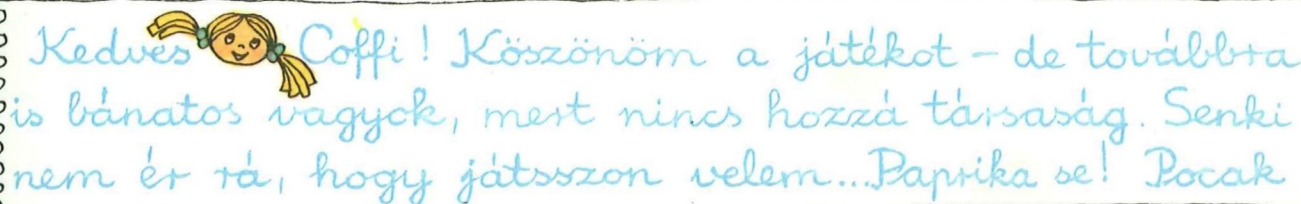 Kedves Coffi! Köszönöm a játékot - de továbbra
is bánatos vagyok, mert nincs hozzá társaság. Senki
nem ér rá, hogy játsszon velem...Paprika se! Pocak